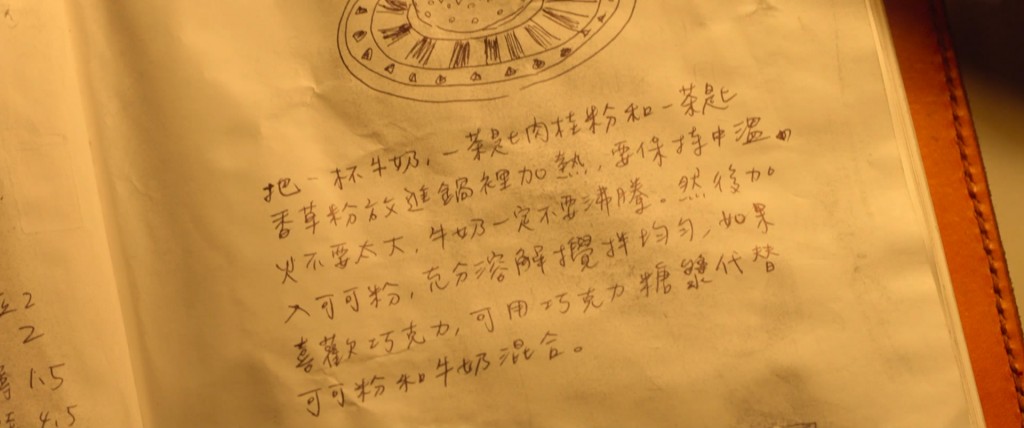 把一杯牛奶,一茶匙肉桂粉和一茶匙
香草粉放進鍋裡加熱,要保持中溫,
火不要太大,牛奶一定不要沸騰。然後加
入可可粉,充分溶解攪拌均勻,如果
喜歡巧克力,可用巧克力糖漿代替
可可粉和牛奶混合。
2
2
1.5
4.5